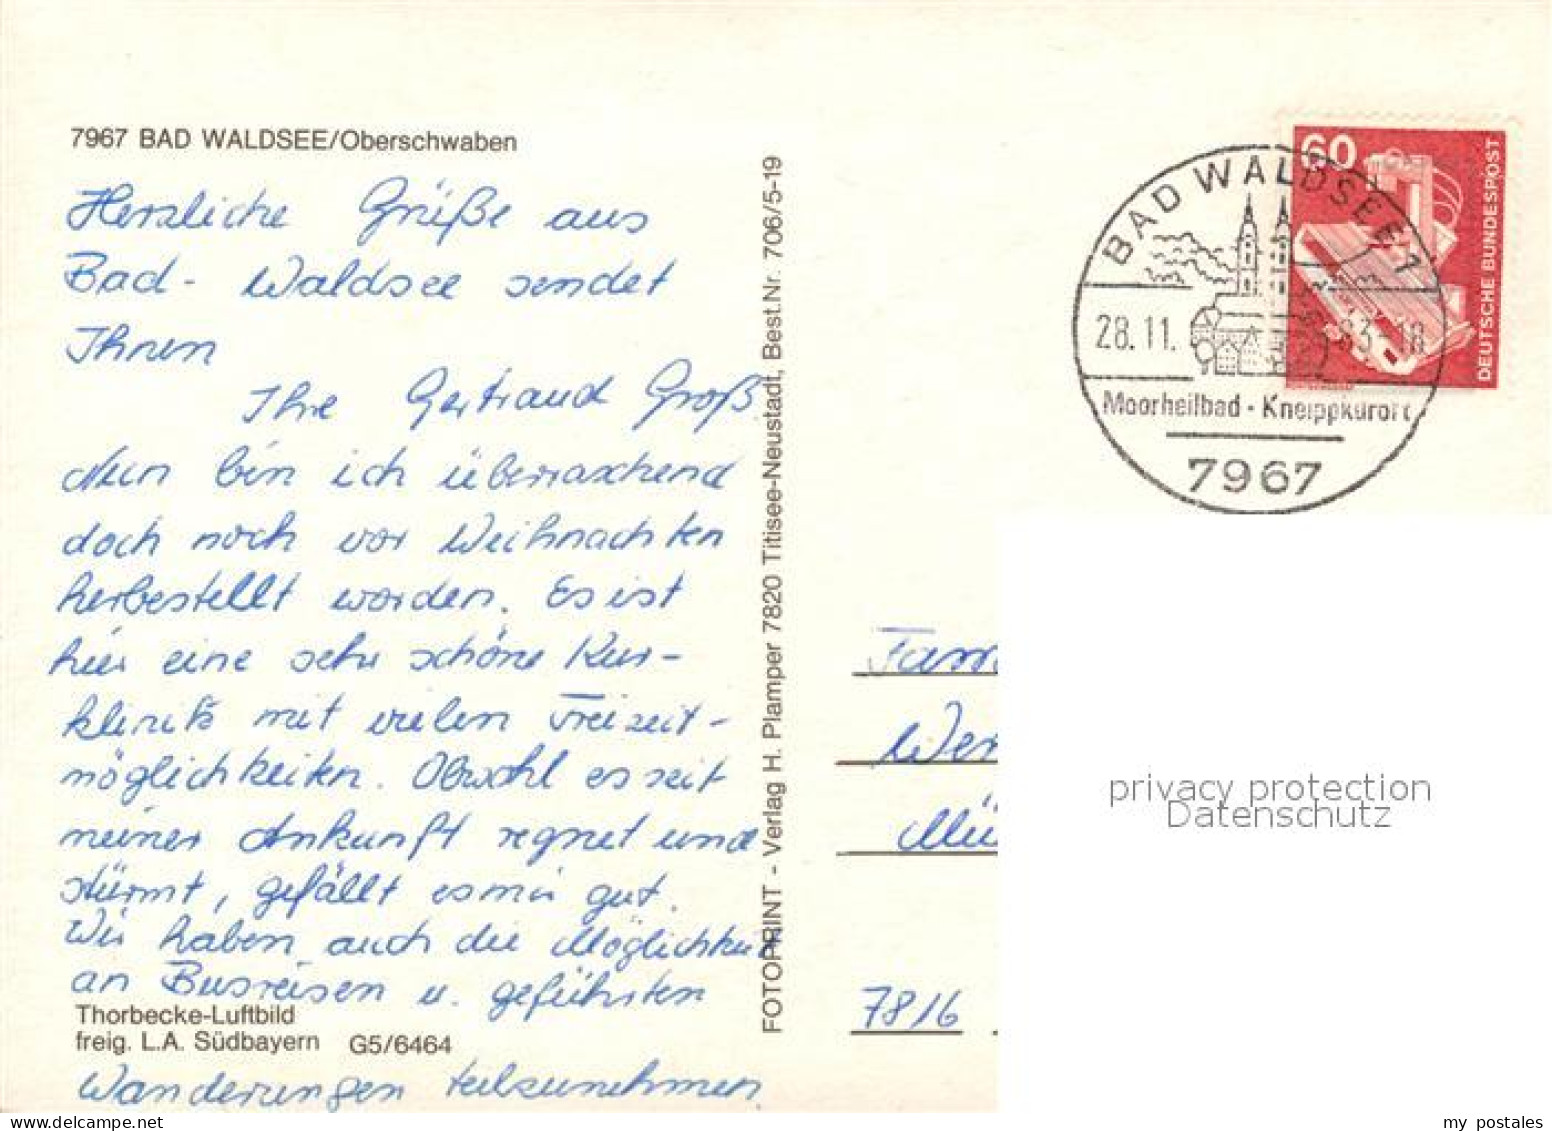 7967 BAD WALDSEE/Oberschwaben
Herzliche Grüße aus
Bad-Waldsee sendet
Ihnen
Ihre Gertraud Groß
Nun bin ich überraschend
doch noch vor Weihnachten
herbestellt worden. Es ist
hier eine sehr schöne Kur-
klinik mit vielen Freizeit-
möglichkeiten. Obwohl es seit
meiner Ankunft regnet und
stürmt, gefällt es mir gut.
Wir haben auch die Möglichkeit
an Busreisen u. geführten
Thorbecke-Luftbild
freig. L.A. Südbayern G5/6464
Wanderungen teilzunehmen.
FOTOPRINT - Verlag H. Plamper 7820 Titisee-Neustadt, Best.Nr. 706/5-19
60
DEUTSCHE BUNDESPOST
BAD WALDSEE 1
28.11. 83-18
Moorheilbad · Kneippkurort
7967
Fam
Wer
Mü
7816
privacy protection
Datenschutz
my postales